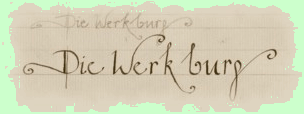 Die Werkburg
Die Werkburg